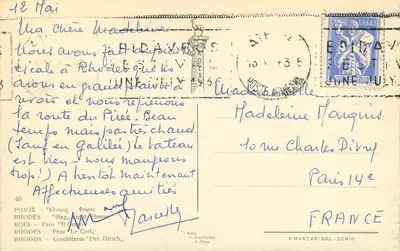 12 Mai
Ma chère Madeleine
Nous avons fait
escale à Rhodes que ns
avons eu grand plaisir à
revoir et nous reprenons
la route du Pirée. Beau
temps mais pas très chaud
(sauf en Galilée) le bateau
est bien - nous mangeons
trop! ) A bientôt maintenant
Affectueuses amitiés
Mademoiselle
Madeleine
10 rue Charles Divry
Paris 14e
FRANCE
40
ΡΟΔΟΣ - "Έλαφος" Φάρος
RHODES
RODI - Faro "Il
RHODES - Phar "Le Cerf"
RHODES - Leuchtturm "Der Hirsch"
P. MANZARI SRL - SCHIO
ΕΛΛΑΣ
JUNE JULY
JUNE JULY